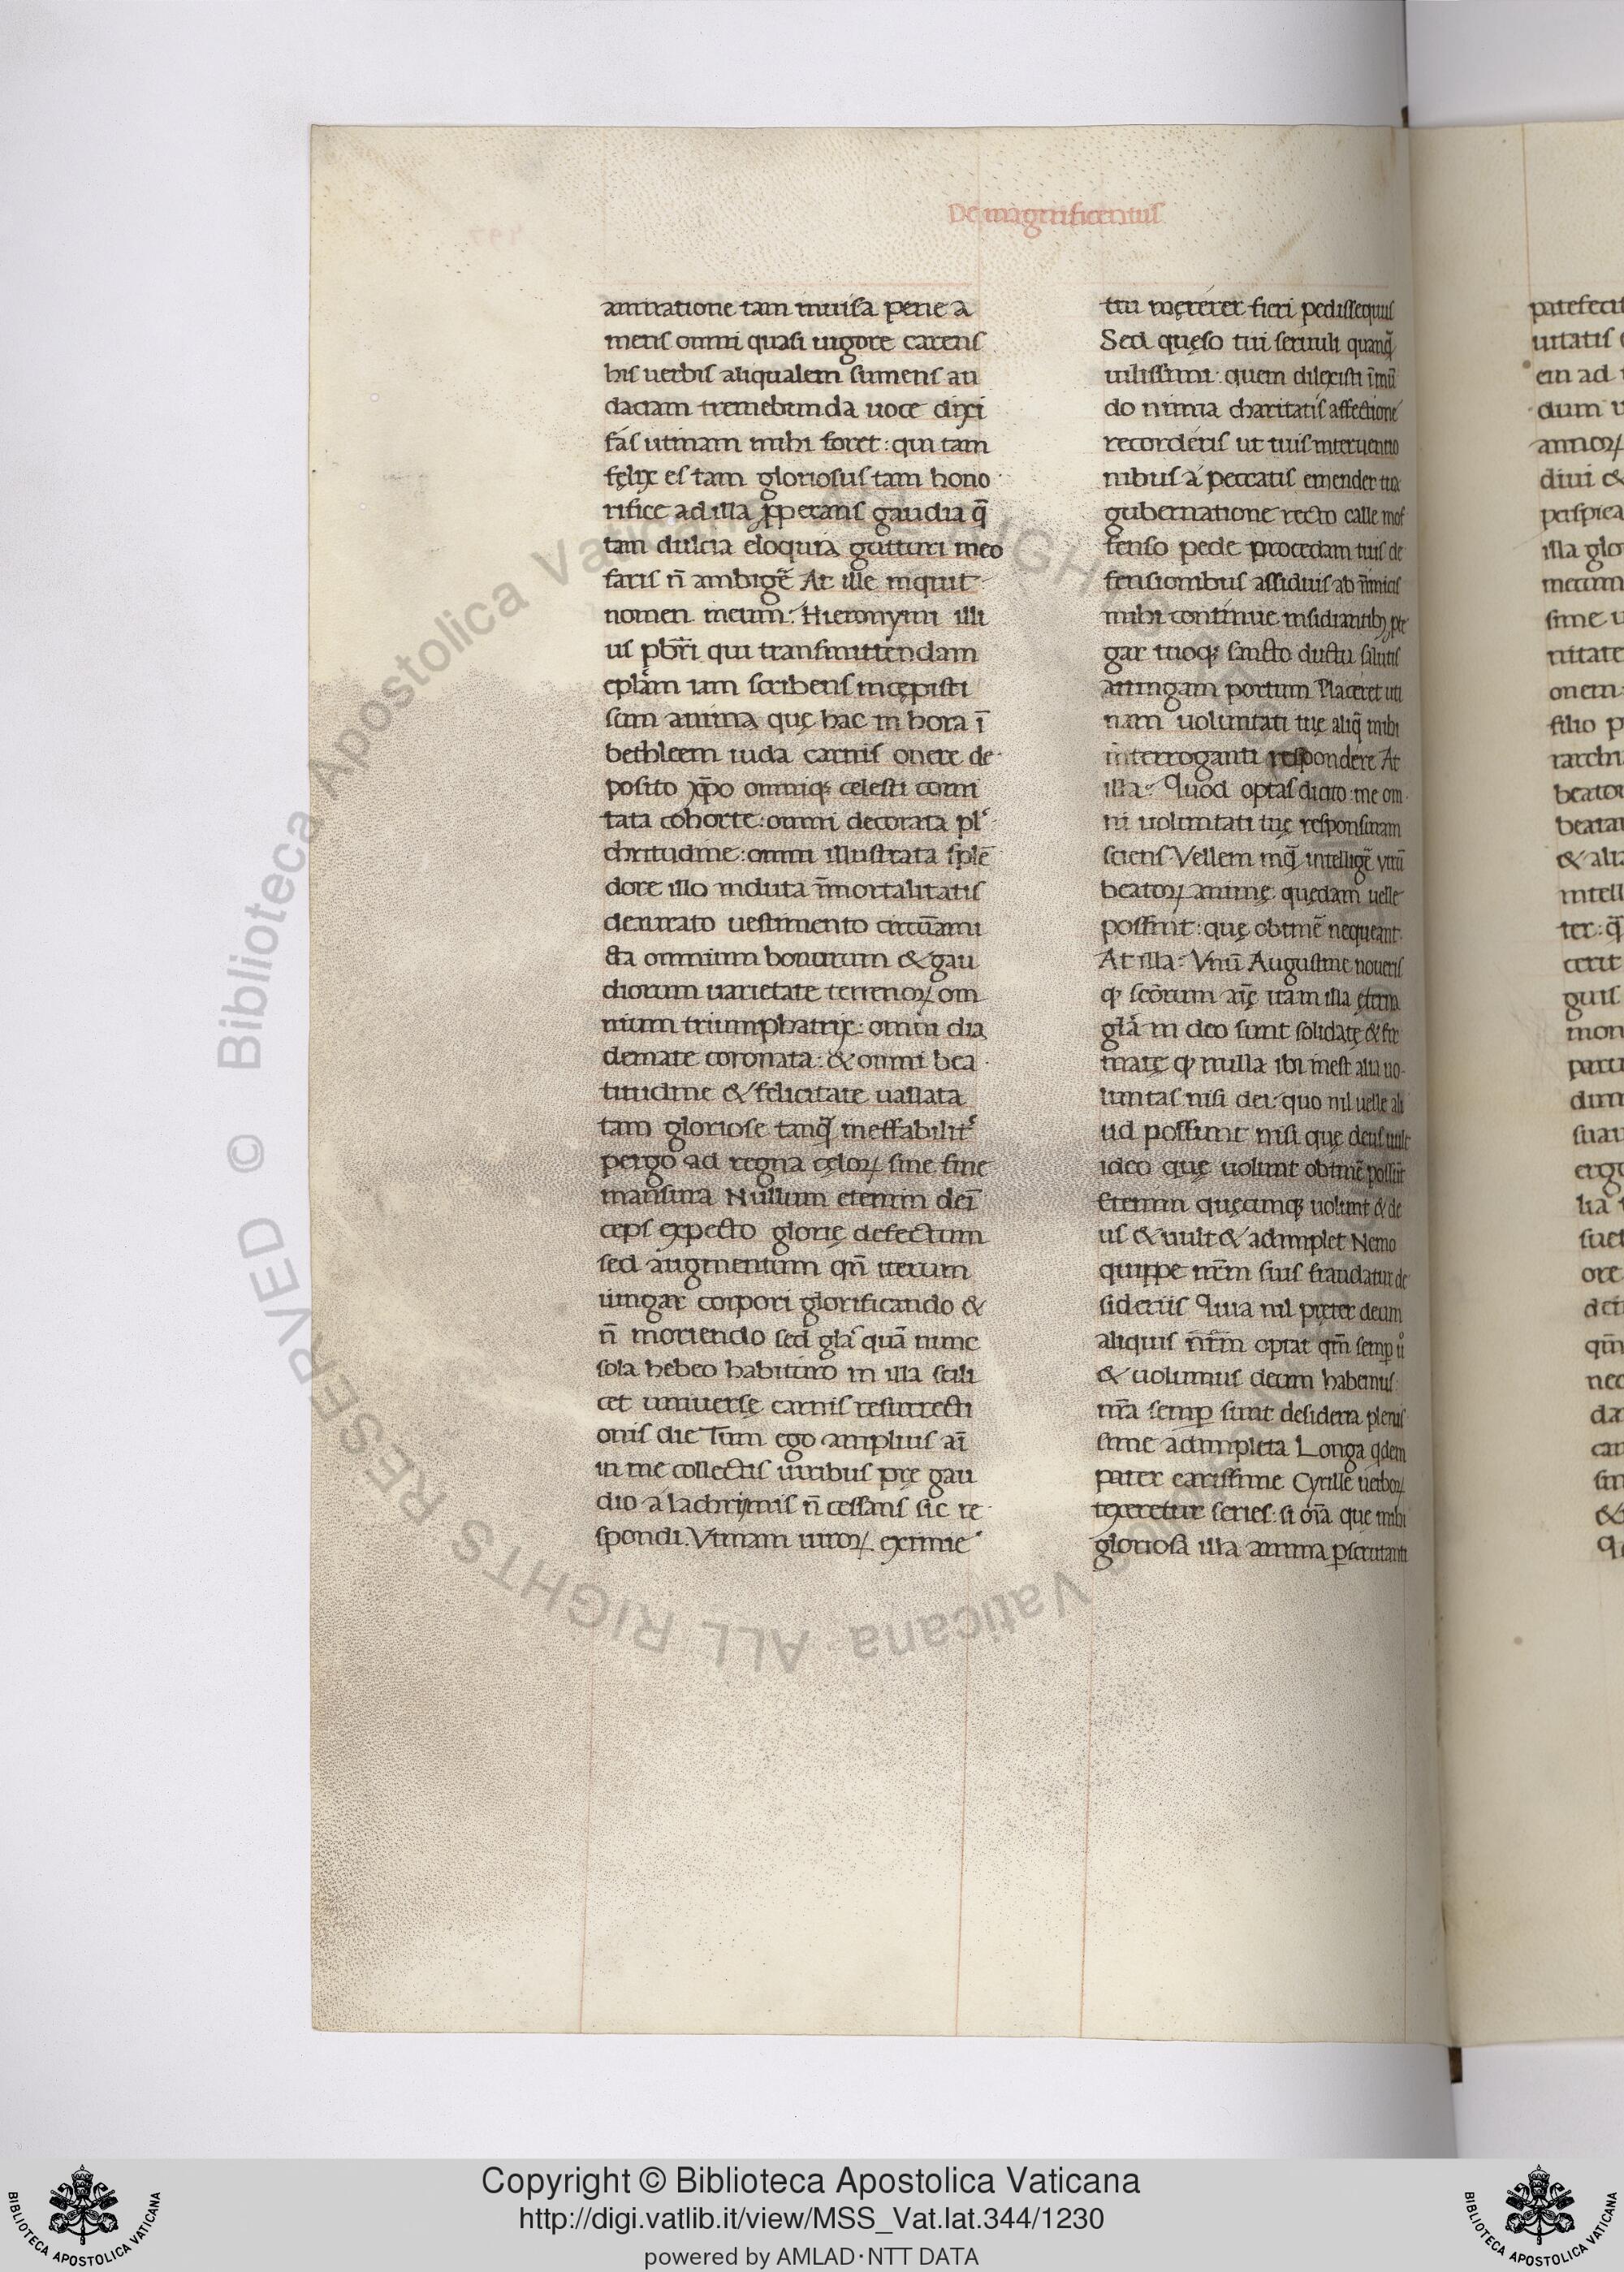 De magnificentiis
amiratione tam inuisa pene a
mens omni quasi uigore carens
his uerbis aliqualem sumens au
daciam tremebunda uoce dixi
fas utinam mihi foret: qui tam
fęlix es tam gloriosus tam hono
rifice ad illa ꝓperans gaudia q̃
tam dulcia eloquia gutturi meo
faris n̄ ambigē At ille inquit
nomen meum: Hieronymi illi
us pb̄ri qui transmittendam
eplām iam scribens incępisti
sum anima quę hac in hora ī
bethleem iuda carnis onere de
posito xp̄o omniqꝫ celesti comi
tata cohorte: omni decorata pl
chritudine: omni illustrata splē
dore illo induta īmortalitatis
deaurato uestimento circūami
cta omnium bonorum & gau
diorum uarietate terrenoꝝ om
nium triumphatrix: omni dia
demate coronata: & omni bea
titudine & felicitate uallata
tam gloriose tanq̃ ineffabilit᷑
pergo ad regna cęloꝝ sine fine
mansura Nullum etenim deī
ceps expecto glorię defectum
sed augmentum qn̄ iterum
iungar corpori glorificando &
n̄ moriendo sed gła quā nunc
sola hebeo habituro in illa scili
cet uniuersę carnis resurrecti
onis die Tum ego amplius aī
in me collectis uiribus prę gau
dio a lachrymis n̄ cessans sic re
spondi. Vtinam uiroꝝ eximie
tui męrerer fieri pedissequus
Sed quęso tui seruuli quanq̃
uilissimi: quem dilexisti ī mū
do nimia charitatis affectione
recorderis ut tuis interuentio
nibus a peccatis emender tua
gubernatione recto calle inof
fenso pede procedam tuis de
fensionibus assiduis ab inimicis
mihi continue insidiantibꝫ pte
gar tuoqꝫ sancto ductu salutis
attingam portum Placeret uti
nam uoluntati tuę aliq̃ mihi
interroganti respondere At
illa: Quod optas dicito: me om
ni uoluntati tuę responsuram
sciens Vellem inq̃ intelligē utrū
beatoꝝ animę quędam uelle
possint: quę obtinē nequeant
At illa: Vnū Augustine noueris
ꝙ scōrum aīę itam illa ęterna
glā in deo sunt solidatę & fir
matę ꝙ nulla ibi inest alia uo
luntas nisi dei: quo nil uelle ali
ud possunt nisi quę deus uult
ideo quę uolunt obtinē possūt
Etenim quęcumqꝫ uolunt & de
us & uult & adimplet Nemo
quippe nr̄m suis fraudatur de
sideriis Quia nil pręter deum
aliquis nr̄m optat qm̄ semꝑ ů
& uolumus deum habemus
nr̄a semꝑ sunt desideria plenis
sime adimpleta Longa qdem
pater carissime Cyrille uerboꝝ
texeretur series: si oīa que mihi
gloriosa illa anima ꝑscrutanti
Copyright © Biblioteca Apostolica Vaticana
http://digi.vatlib.it/view/MSS_Vat.lat.344/1230
powered by AMLAD·NTT DATA